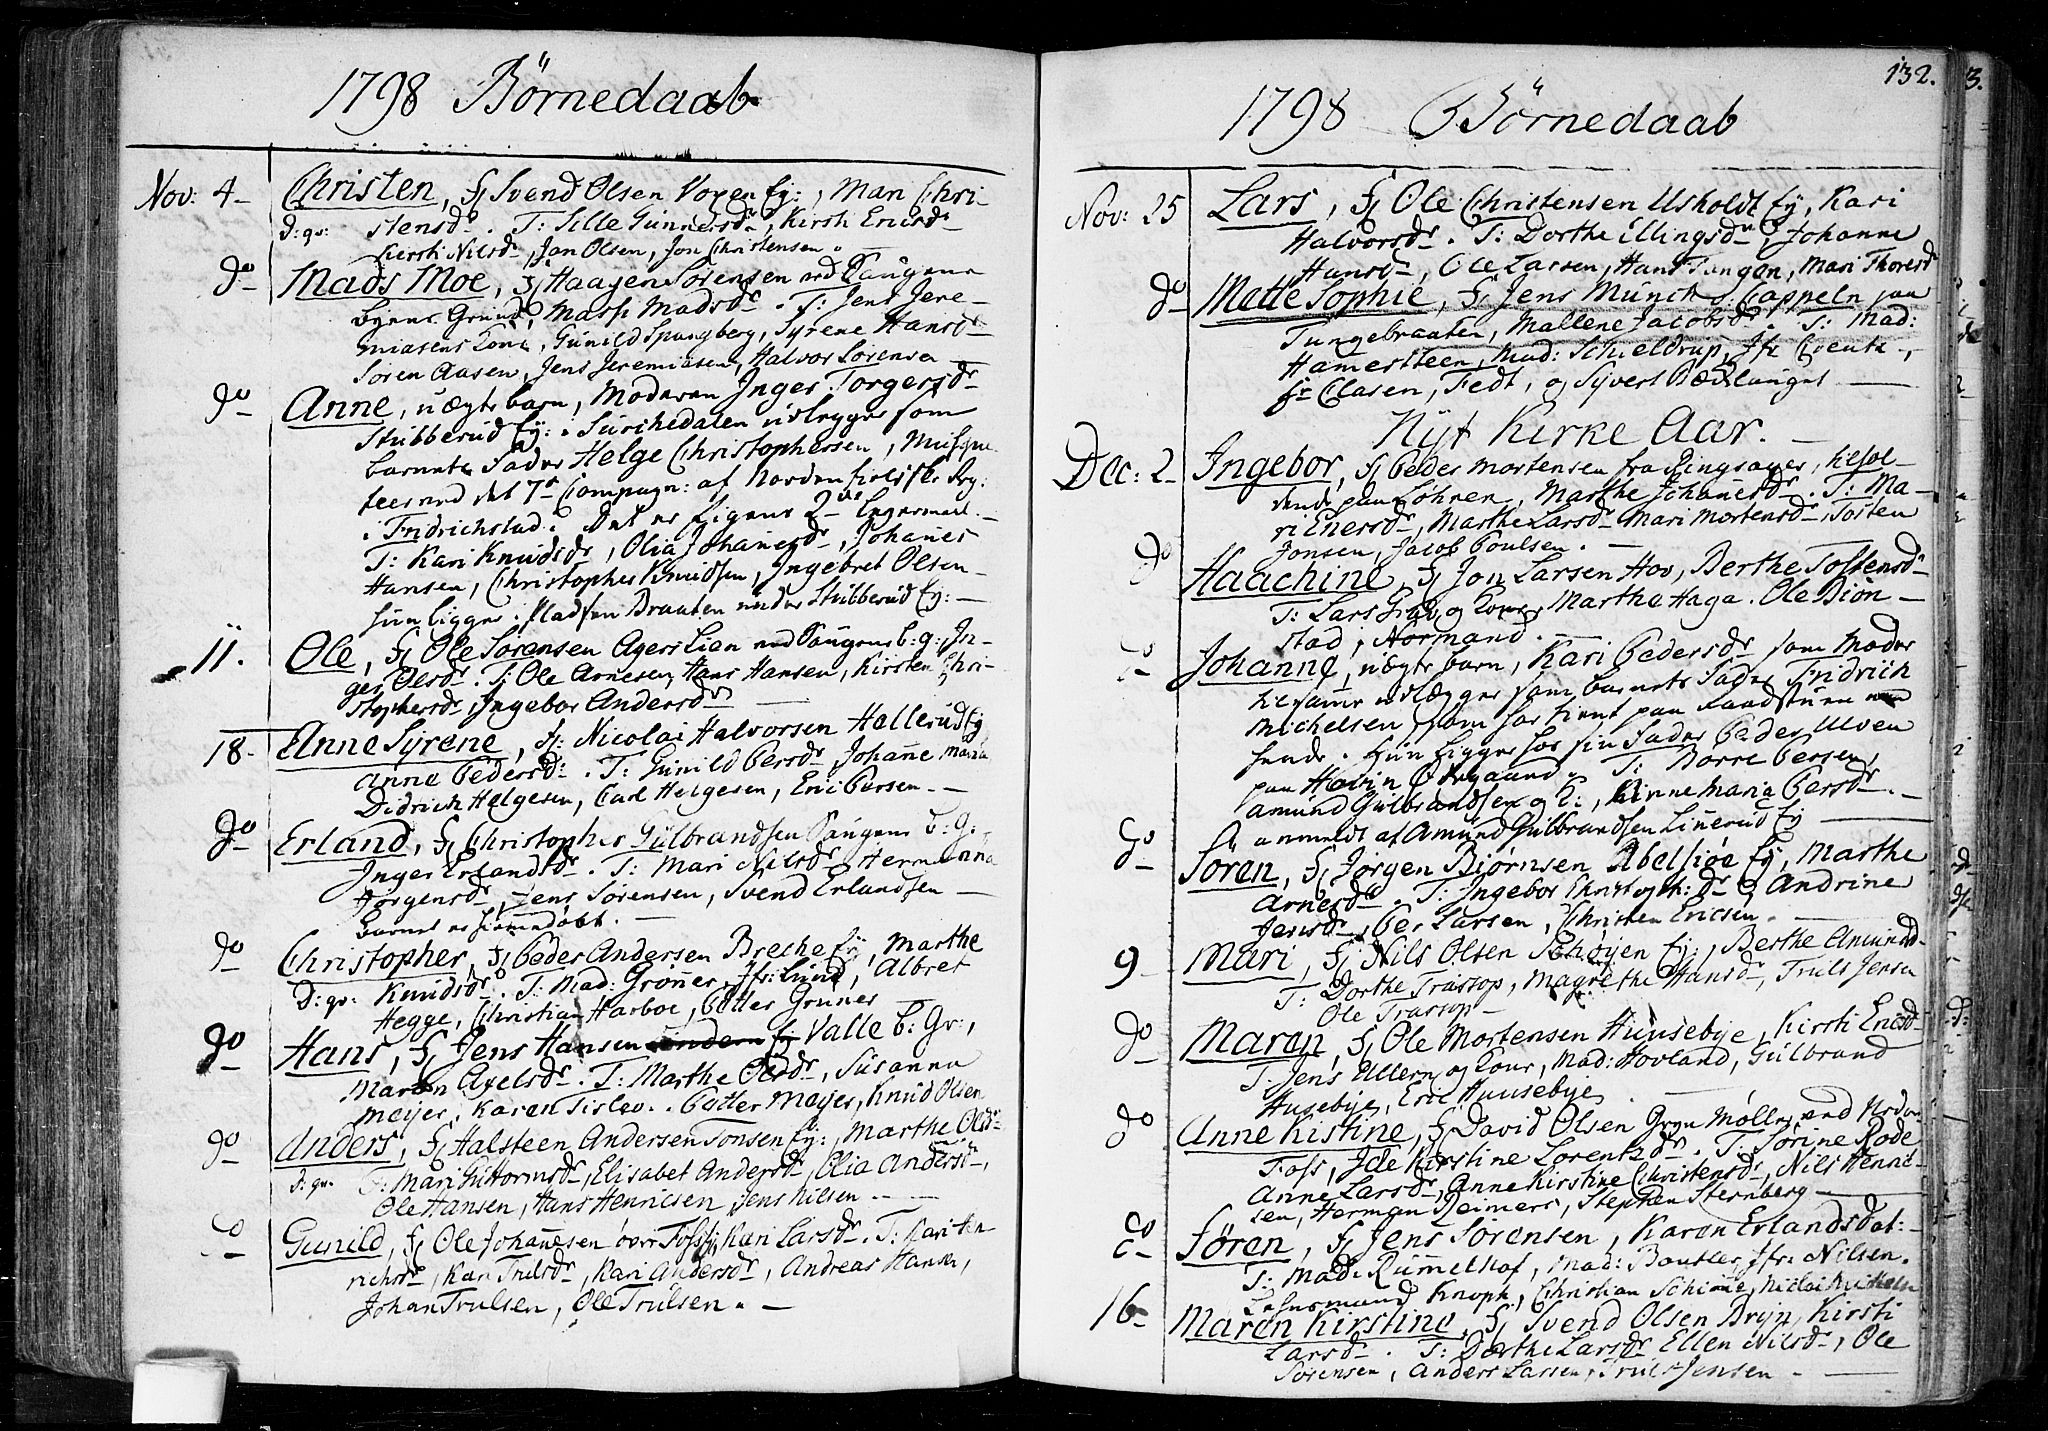 1798 Börnedaab
Nov: 4 Christen, F Svend Olsen Voxen Ej:, Mari Chri-
D: gv: stensdr. T: Sille Gunnersdr, Kirsti Ericsdr
Kiersti Nilsdr, Jan Olsen, Jon Christensen.
do Mads Moe, F Haagen Sörensen ved Saugene
Byens Grund, Marte Madsdr. T: Jens Jere-
miasens Kone, Gunild Spangberg, Syrene Hansdr
Soren Aasen, Jens Jeremiasen, Halvor Sorensen
do Anne, uægte barn, Moderen Inger Torgersdr
Stubberud Ej: i Surchedalen udlegger som
barnets Fader Helge Christophersen, Musque-
teer ved det 7de Compagn: af Nordenfieldske Reg:
i Fridrichstad. Det er Pigens 2det Legermaal.
T: Kari Knudsdr, Olia Johanesdr, Johanes
Hansen, Christopher Knudsen, Ingebret Olsen
hun ligger i Pladsen Braaten under Stubberud Ej:
11. Ole, F Ole Sörensen Agers Lien ved Saugene b: g:, In-
ger Olsdr. T: Ole Arnesen, Hans Hansen, Kirsten Chri-
stophersdr, Ingebor Andersdr
18 Anne Syrene, F: Nicolai Halvorsen Hallerud Ej
Anne Pedersdr. T: Gunild Persdr, Johane Maria
Didrich Helgesen, Carl Helgesen, Eric Persen.
do Erland, F Christopher Gulbrandsen Saugene b: g:
Inger Erlandsdr. T: Mari Nilsdr, Hermanna
Jörgensdr, Jens Sörensen, Svend Erlandsen
Barnet er hiemmedöbt.
do Christopher, F Peder Andersen Breche Ej, Marthe
D: gv: Knudsdr. T: Mad: Gröner, Jfr: Lund, Albret
Hegge, Christian Harboe, Petter Gruner
do Hans, F Jens Hansen Valle b: Gr:,
Maren Axelsdr. T: Marthe Olsdr, Susanna
Meyer, Karen Tislev. Petter Meyer, Knud Olsen
do Anders, F Halsteen Andersen Tonsen Ej:, Marthe Olsdr
D: gv. T: Mari Guttormsdr, Elisabet Andersdr, Olia Andersdr,
Ole Hansen, Hans Henricsen, Jens Nilsen
do Gunild, F Ole Johanesen over Foss, Kari Larsdr. T: Kari Hen-
richsdr, Kari Trulsdr, Kari Andersdr, Andreas Hansen,
Johan Trulsen, Ole Trulsen.
132.
1798 Börnedaab
Nov: 25 Lars, F Ole Christensen Usholdt Ej, Kari
Halvorsdr. T: Dorthe Ellingsdr, Johanne
Hansdr, Ole Larsen, Hans Tangen, Mari Thoresdr
do Mette Sophie, F Jens Munch Cappeln paa
Tungebraaten, Mallene Jacobsdr. T: Mad:
Hamersteen, Mad: Schieldrup, Jfr Coents,
Hr Clasen, Fedt, og Syvert Bædtlanget
Nyt Kirke Aar.
Dec: 2 Ingebor, F Peder Mortensen fra Ringsager, til folk-
dende paa Löhren, Marthe Johanesdr. T: Ma-
ri Enersdr, Marthe Larsdr, Mari Mortensdr, Tosten
Jonsen, Jacob Poulsen.
do Haachine, F Jon Larsen Hov, Berthe Tostensdr
T: Lars Frog og Kone, Marthe Haga. Ole Biön-
stad, Normand.
do Johanne, uægte barn, Kari Pedersdr som Moder
til samme udlægger som barnets Fader Fridrich
Michelsen som har tient paa Raadstuen
Hun ligger hos sin Fader Peder Ulven
paa Hovin Ödegaard. T: Borre Persen,
Amund Gulbrandsen og K:, Anne Maria Persdr.
anmeldt af Amund Gulbrandsen Linerud Ej
do Sören, F Jörgen Biörnsen Abelsiöe Ej, Marthe
Arnesdr. T: Ingebor Christoph:dr, Andrine
Jensdr, Per Larsen, Christen Ericsen.
9 Mari, F Nils Olsen Schöyen Ej:, Berthe Amundsdr
T: Dorthe Trosop, Magrethe Hansdr, Truls Jensen
Ole Trosop
do Maren, F Ole Mortensen Huusebye, Kirsti Ericsdr
T: Jens Ullern og Kone, Mad: Hovland, Gulbrand
Husebye, Eric Huusebye
do Anne Kistine, F David Olsen Gryn Möller ved Nedre
Foss, Ide Kirstine Lorentzdr. T: Sörine Rode
Anne Larsdr, Anne Kirstine Christensdr, Nils Henric-
sen, Herman Reimers, Stephan Sternberg
do Sören, F Jens Sörensen, Karen Erlandsdat:
T: Mad: Rummelhof, Mad: Boutler, Jfr: Nilsen.
Knoph, Christian Schiøtte, Niclai
16 Maren Kirstine, F Svend Olsen Bryn, Kirsti
Larsdr. T: Dorthe Larsdr, Ellen Nilsdr, Ole
Sörensen, Anders Larsen, Truls Jensen.